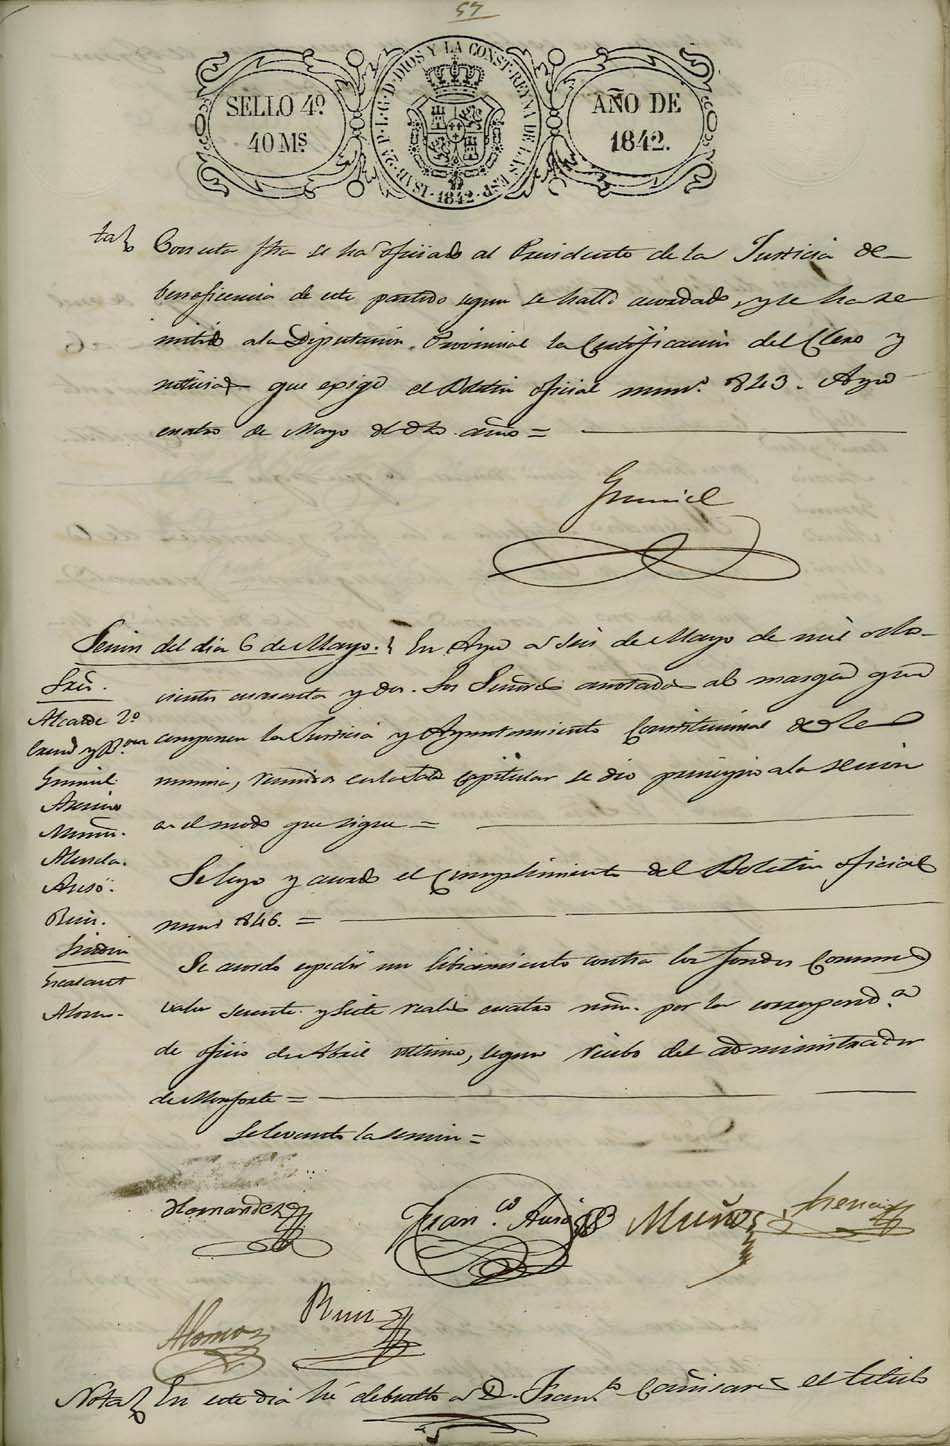 57
SELLO 4º
40 Mˢ
ISAB. 2ª P. L. G. D. DIOS Y LA CONST. REYNA DE LAS ESP. 1842
AÑO DE
1842.
Con esta fha se ha oficiado al Presidente de la Justicia de
beneficencia de este partido segun se halla acordado, y se ha re
mitido a la Diputacion Provincial la Certificacion del Clero y
noticias que exige el Boletin oficial num.º 843. Aspe
cuatro de Mayo de dho año =
Gumiel
Sesion del dia 6 de Mayo. En Aspe a seis de Mayo de mil ocho-
cientos cuarenta y dos. Los Señores anotados al margen que
componen la Justicia y Ayuntamiento Constitucional de ella
reunidos en la Sala Capitular se dio principio a la sesion
en el modo que sigue =
Sres.
Alcalde 2º
Gumiel
Asencio
Muñoz.
Almela.
Ausó.
Ruiz.
Sindico
Alonso.
Se leyo y acordó el cumplimiento del Boletin oficial
num.º 846. =
Se acordo espedir un libramiento contra los fondos Comunes
valor sesenta y siete reales cuatro mrs. por la correspond.ª
de oficio de Abril ultimo, segun recibo del administrador
de Monforte =
Se levanto la sesion =
Hernandez
Fran.co Ausó
Muñoz
Asencio
Alonso
Ruiz
Nota En este dia hé debuelto a D. Fran.co Cañizares el titulo